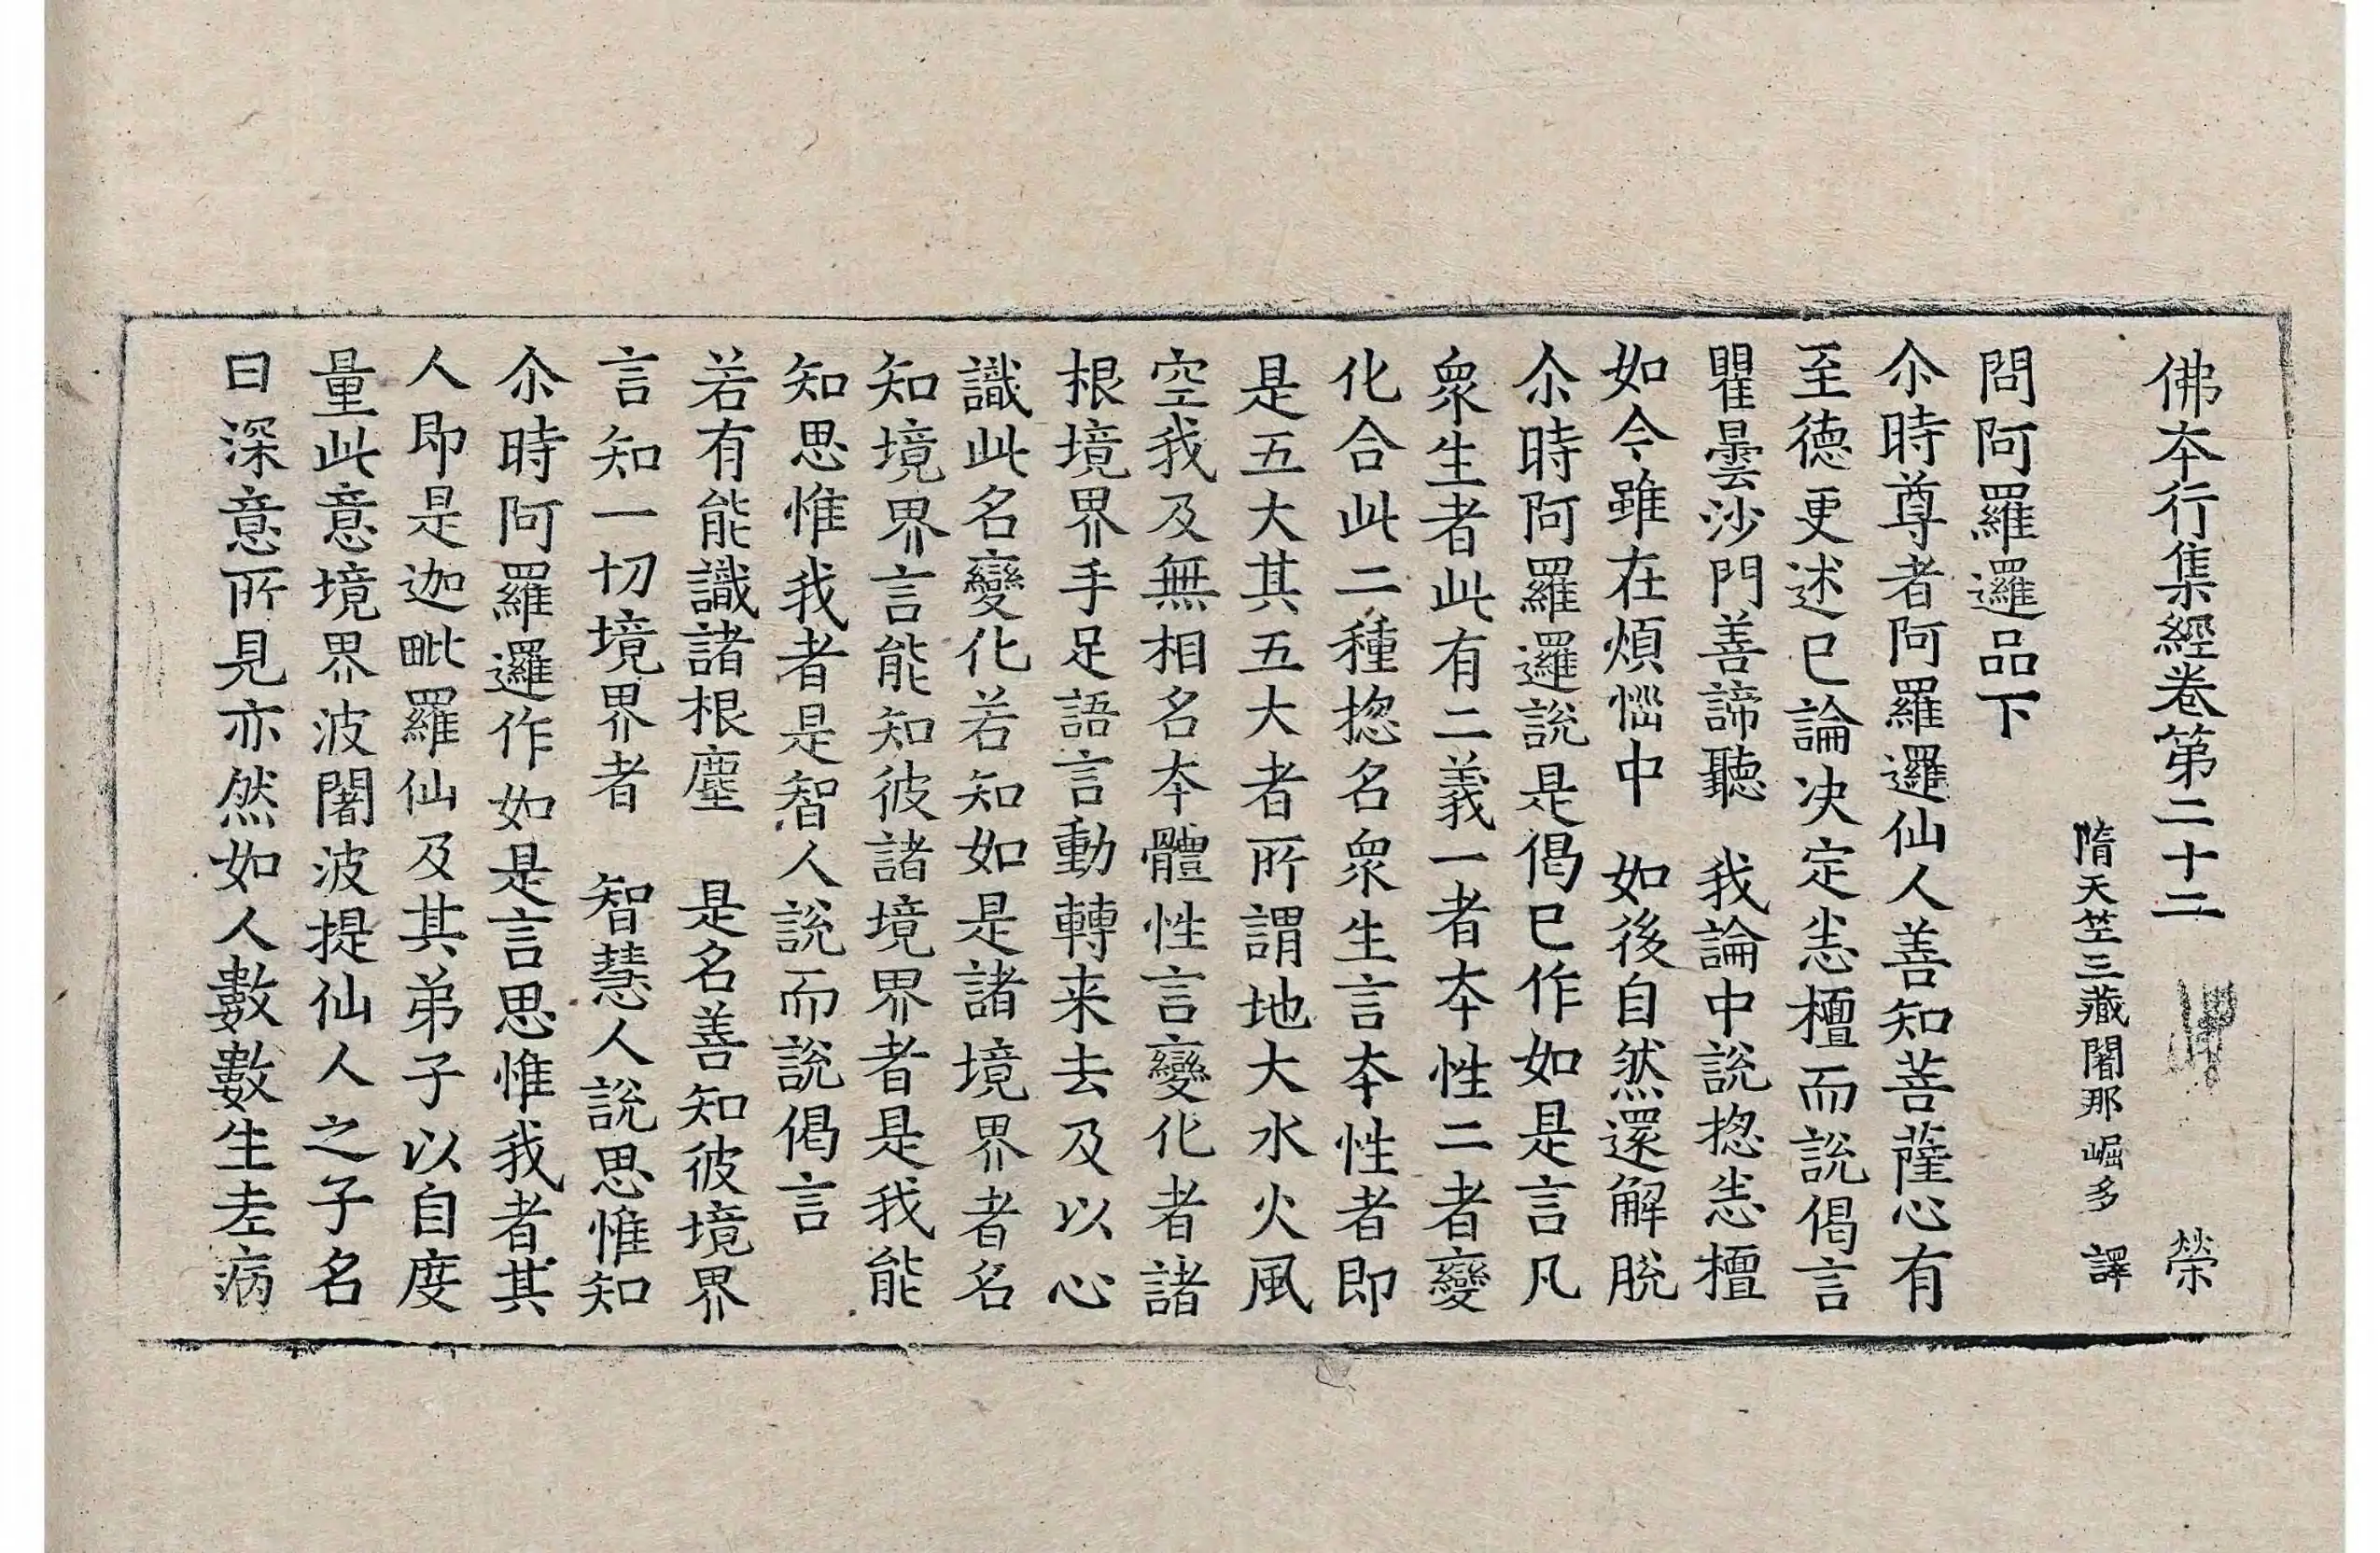 佛本行集經卷第二十二 榮
隋天竺三藏闍那崛多 譯
問阿羅邏品下
尒時尊者阿羅邏仙人善知菩薩心有
至德更述已論决定恙檀而說偈言
瞿曇沙門善諦聽 我論中說揔恙檀
如今雖在煩惱中 如後自然還解脫
尒時阿羅邏說是偈已作如是言凡
衆生者此有二義一者本性二者變
化合此二種揔名衆生言本性者即
是五大其五大者所謂地大水火風
空我及無相名本體性言變化者諸
根境界手足語言動轉来去及以心
識此名變化若知如是諸境界者名
知境界言能知彼諸境界者是我能
知思惟我者是智人說而說偈言
若有能識諸根塵 是名善知彼境界
言知一切境界者 智慧人說思惟知
尒時阿羅邏作如是言思惟我者其
人即是迦毗羅仙及其弟子以自度
量此意境界波闍波提仙人之子名
曰深意所見亦然如人數數生老病